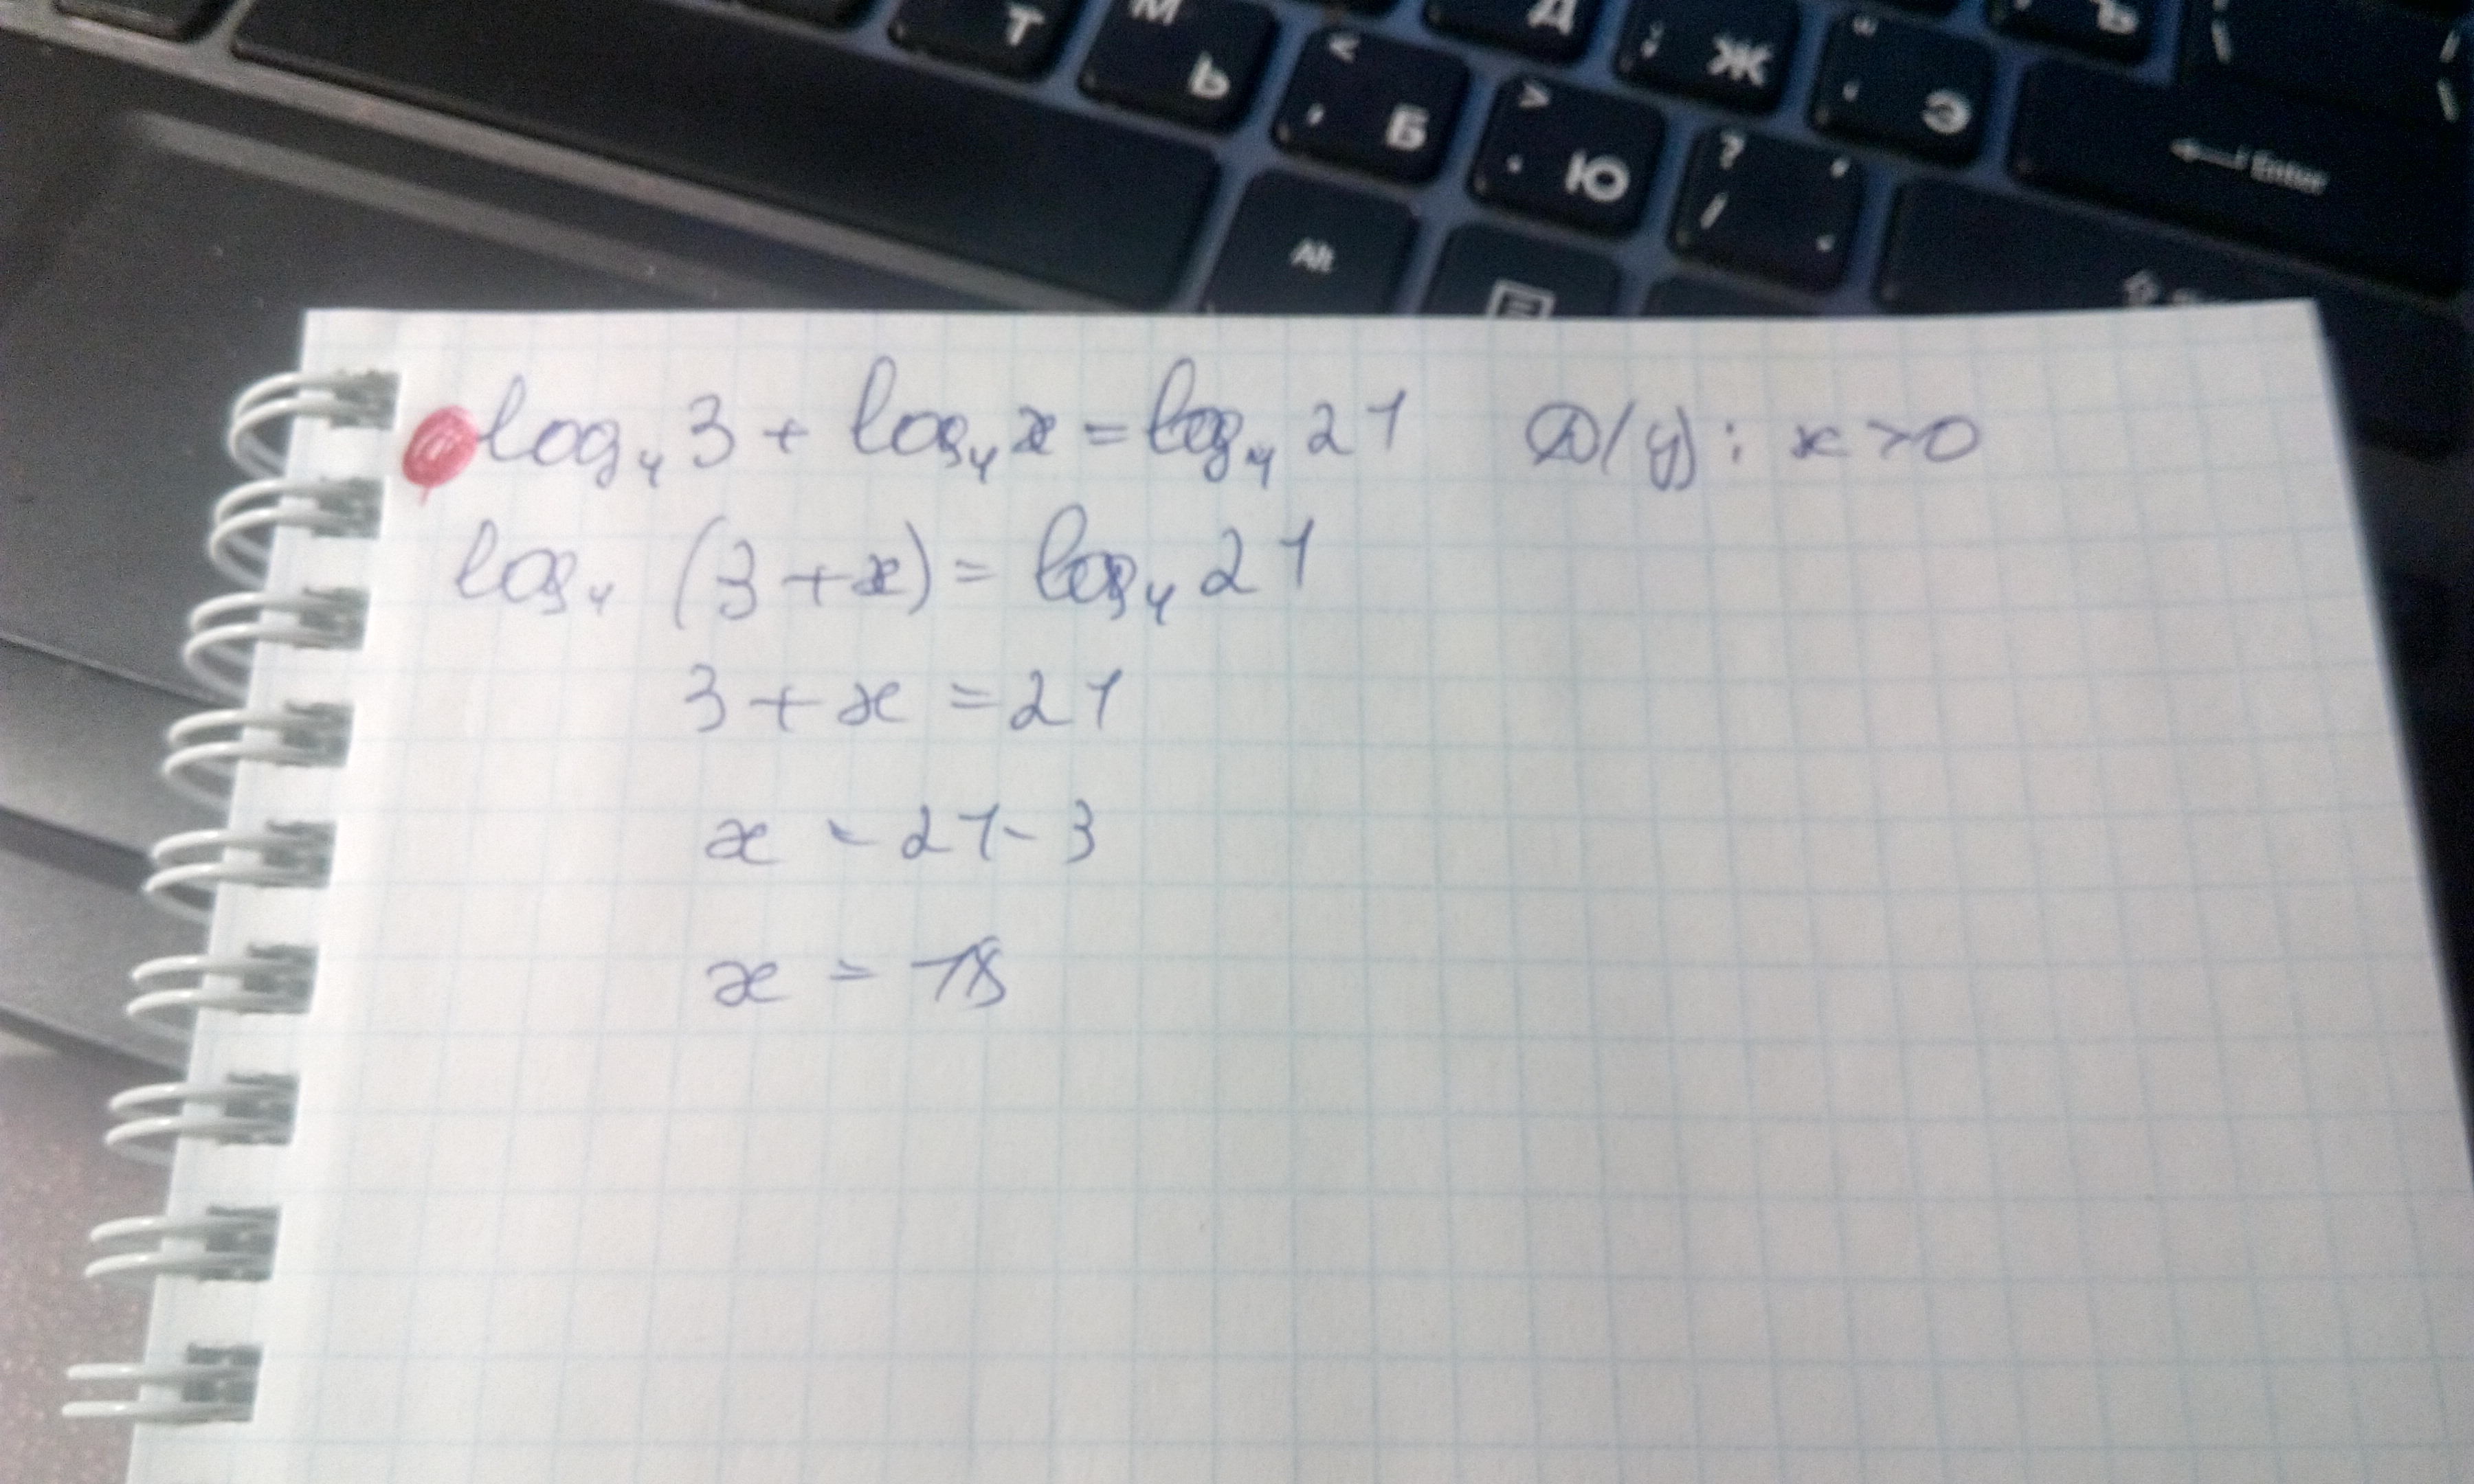 Т М Ь < , Б Д > . Ю ; Ж ? / , . " ' Э Ъ
Alt ← Enter
log₄ 3 + log₄ x = log₄ 21 D(y): x > 0
log₄ (3 + x) = log₄ 21
3 + x = 21
x = 21 - 3
x = 18